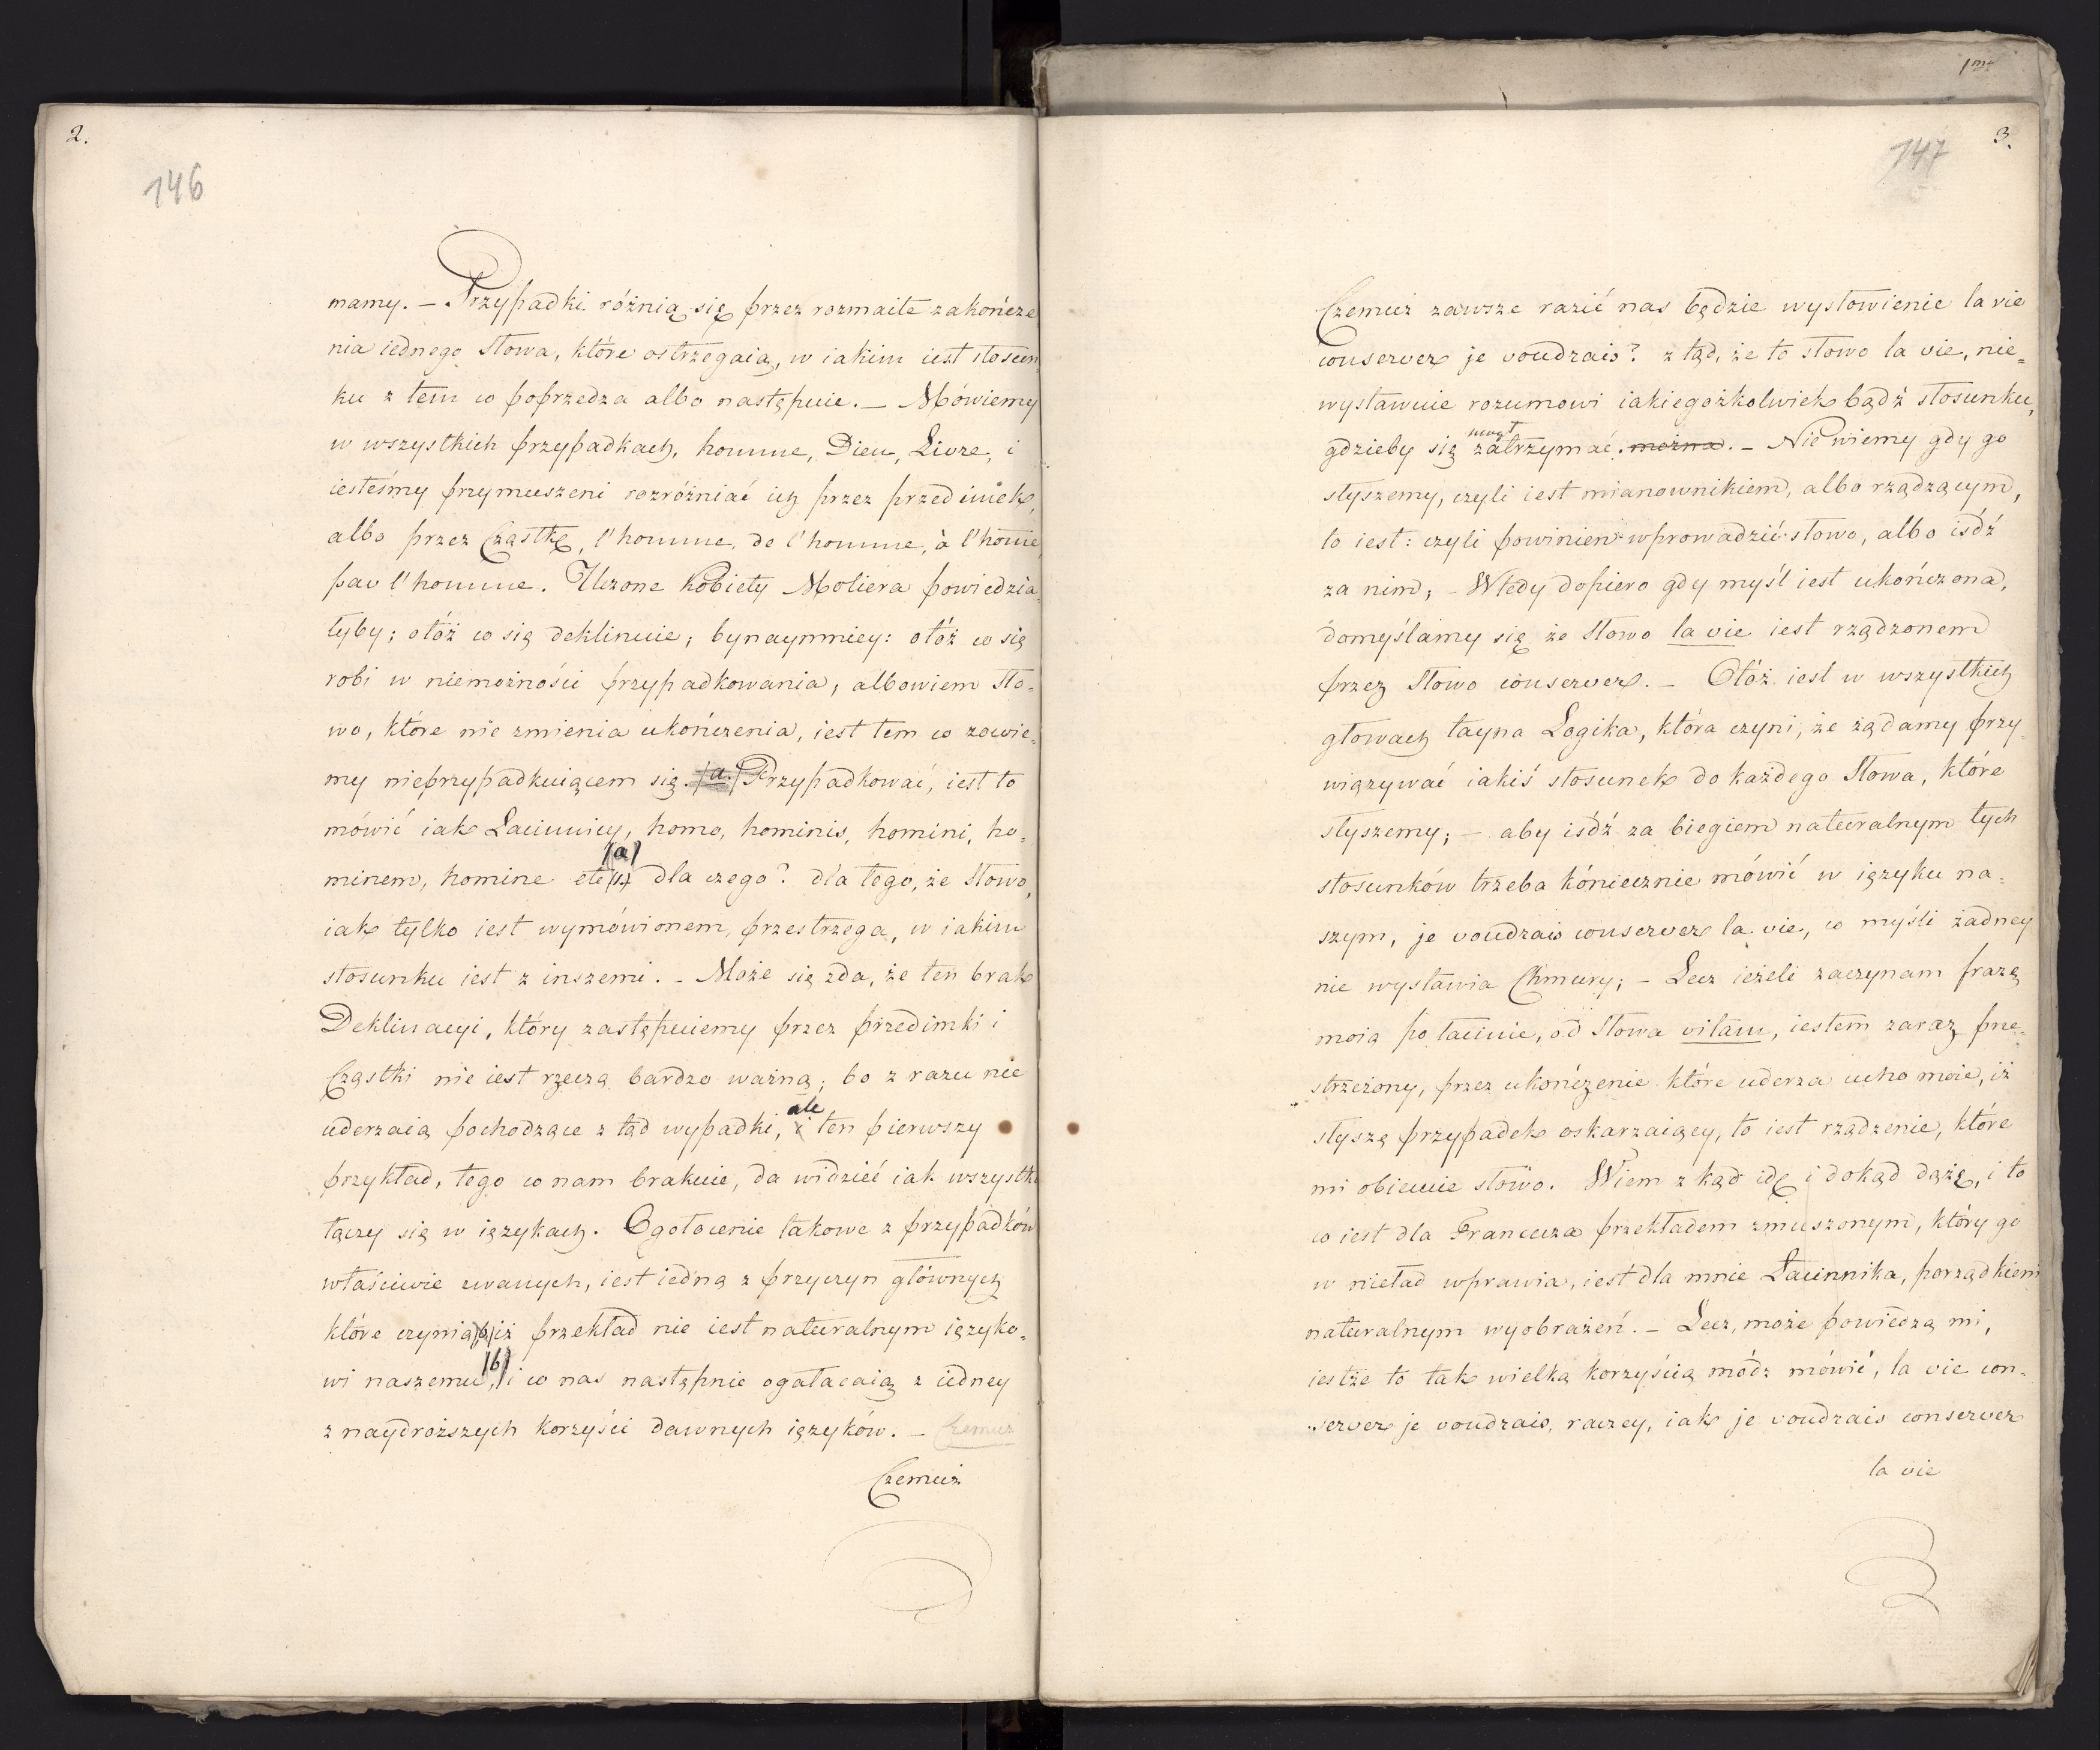 2.
146
mamy. – Przypadki różnią się przez rozmaite zakończe
nia iednego słowa, które ostrzegaią, w iakim iest stosun
ku z tem co poprzedza albo następuie. – Mówiemy
w wszystkich przypadkach, homme, Dieu, Livre, i
iesteśmy przymuszeni rozróżniać ich przez przedimek,
albo przez Cząstkę, l'homme, de l'homme, à l'home,
par l'homme. Uczone Kobiety Moliera powiedzia=
łyby; otóż co się deklinuie; bynaymniey: otóż co się
robi w niemożności przypadkowania, albowiem sło=
wo, które nie zmienia ukończenia, iest tem co zowie=
my nieprzypadkuiącem się. /a./ Przypadkować, iest to
mówić iak Łacinnicy, homo, hominis, homini, ho=
/a/
minem, homine etc dla czego? dla tego, że słowo,
iak tylko iest wymówionem, przestrzega, w iakim
stosunku iest z inszemi. – Może się zda, że ten brak
Deklinacyi, który zastępuiemy przez przedimki i
Cząstki nie iest rzeczą bardzo ważną; bo z razu nie
ale
uderzaią pochodzące z tąd wypadki, i ten pierwszy
przykład, tego co nam brakuie, da widzieć iak wszystko
łączy się w ięzykach. Ogołocenie takowe z przypadków
właściwie zwanych, iest iedną z przyczyn głównych
które czynią /b/ iż przekład nie iest naturalnym ięzyko=
/b/
wi naszemu, i co nas następnie ogałacaią z iedney
z naydroższych korzyści dawnych ięzyków. – Czemuż
Czemuż
3.
147
Czemuż zawsze razić nas będzie wysłowienie la vie
conserver je voudrais? z tąd, że to słowo la vie, nie=
wystawuie rozumowi iakiegożkolwiek bądź stosunku,
mógł
gdzieby się zatrzymać można. – Nie wiemy gdy go
słyszemy, czyli iest mianownikiem, albo rządzącym,
to iest: czyli powinien wprowadzić słowo, albo iśdź
za nim; – Wtedy dopiero gdy myśl iest ukończona,
domyślamy się że słowo la vie iest rządzonem
przez słowo conserver. – Otóż iest w wszystkich
głowach tayna Logika, która czyni, że żądamy przy
wiązywać iakiś stosunek do każdego słowa, które
słyszemy; – aby iśdź za biegiem naturalnym tych
stosunków trzeba koniecznie mówić w ięzyku na=
szym, je voudrais conserver la vie, co myśli żadney
nie wystawia Chmury; – Lecz ieżeli zaczynam frazę
moią po łacinie, od słowa vitam, iestem zaraz prze=
strzeżony, przez ukończenie które uderza ucho moie, iż
słyszę przypadek oskarzaiący, to iest rządzenie, które
mi obiecuie słowo. Wiem z kąd idę i dokąd dążę, i to
co iest dla Francuza przekładem zmuszonym, który go
w nieład wprawia, iest dla mnie Łacinnika, porządkiem
naturalnym wyobrażeń. – Lecz, może powiedzą mi,
iestże to tak wielką korzyścią módz mówić, la vie con=
server je voudrais, raczey, iak je voudrais conserver
la vie